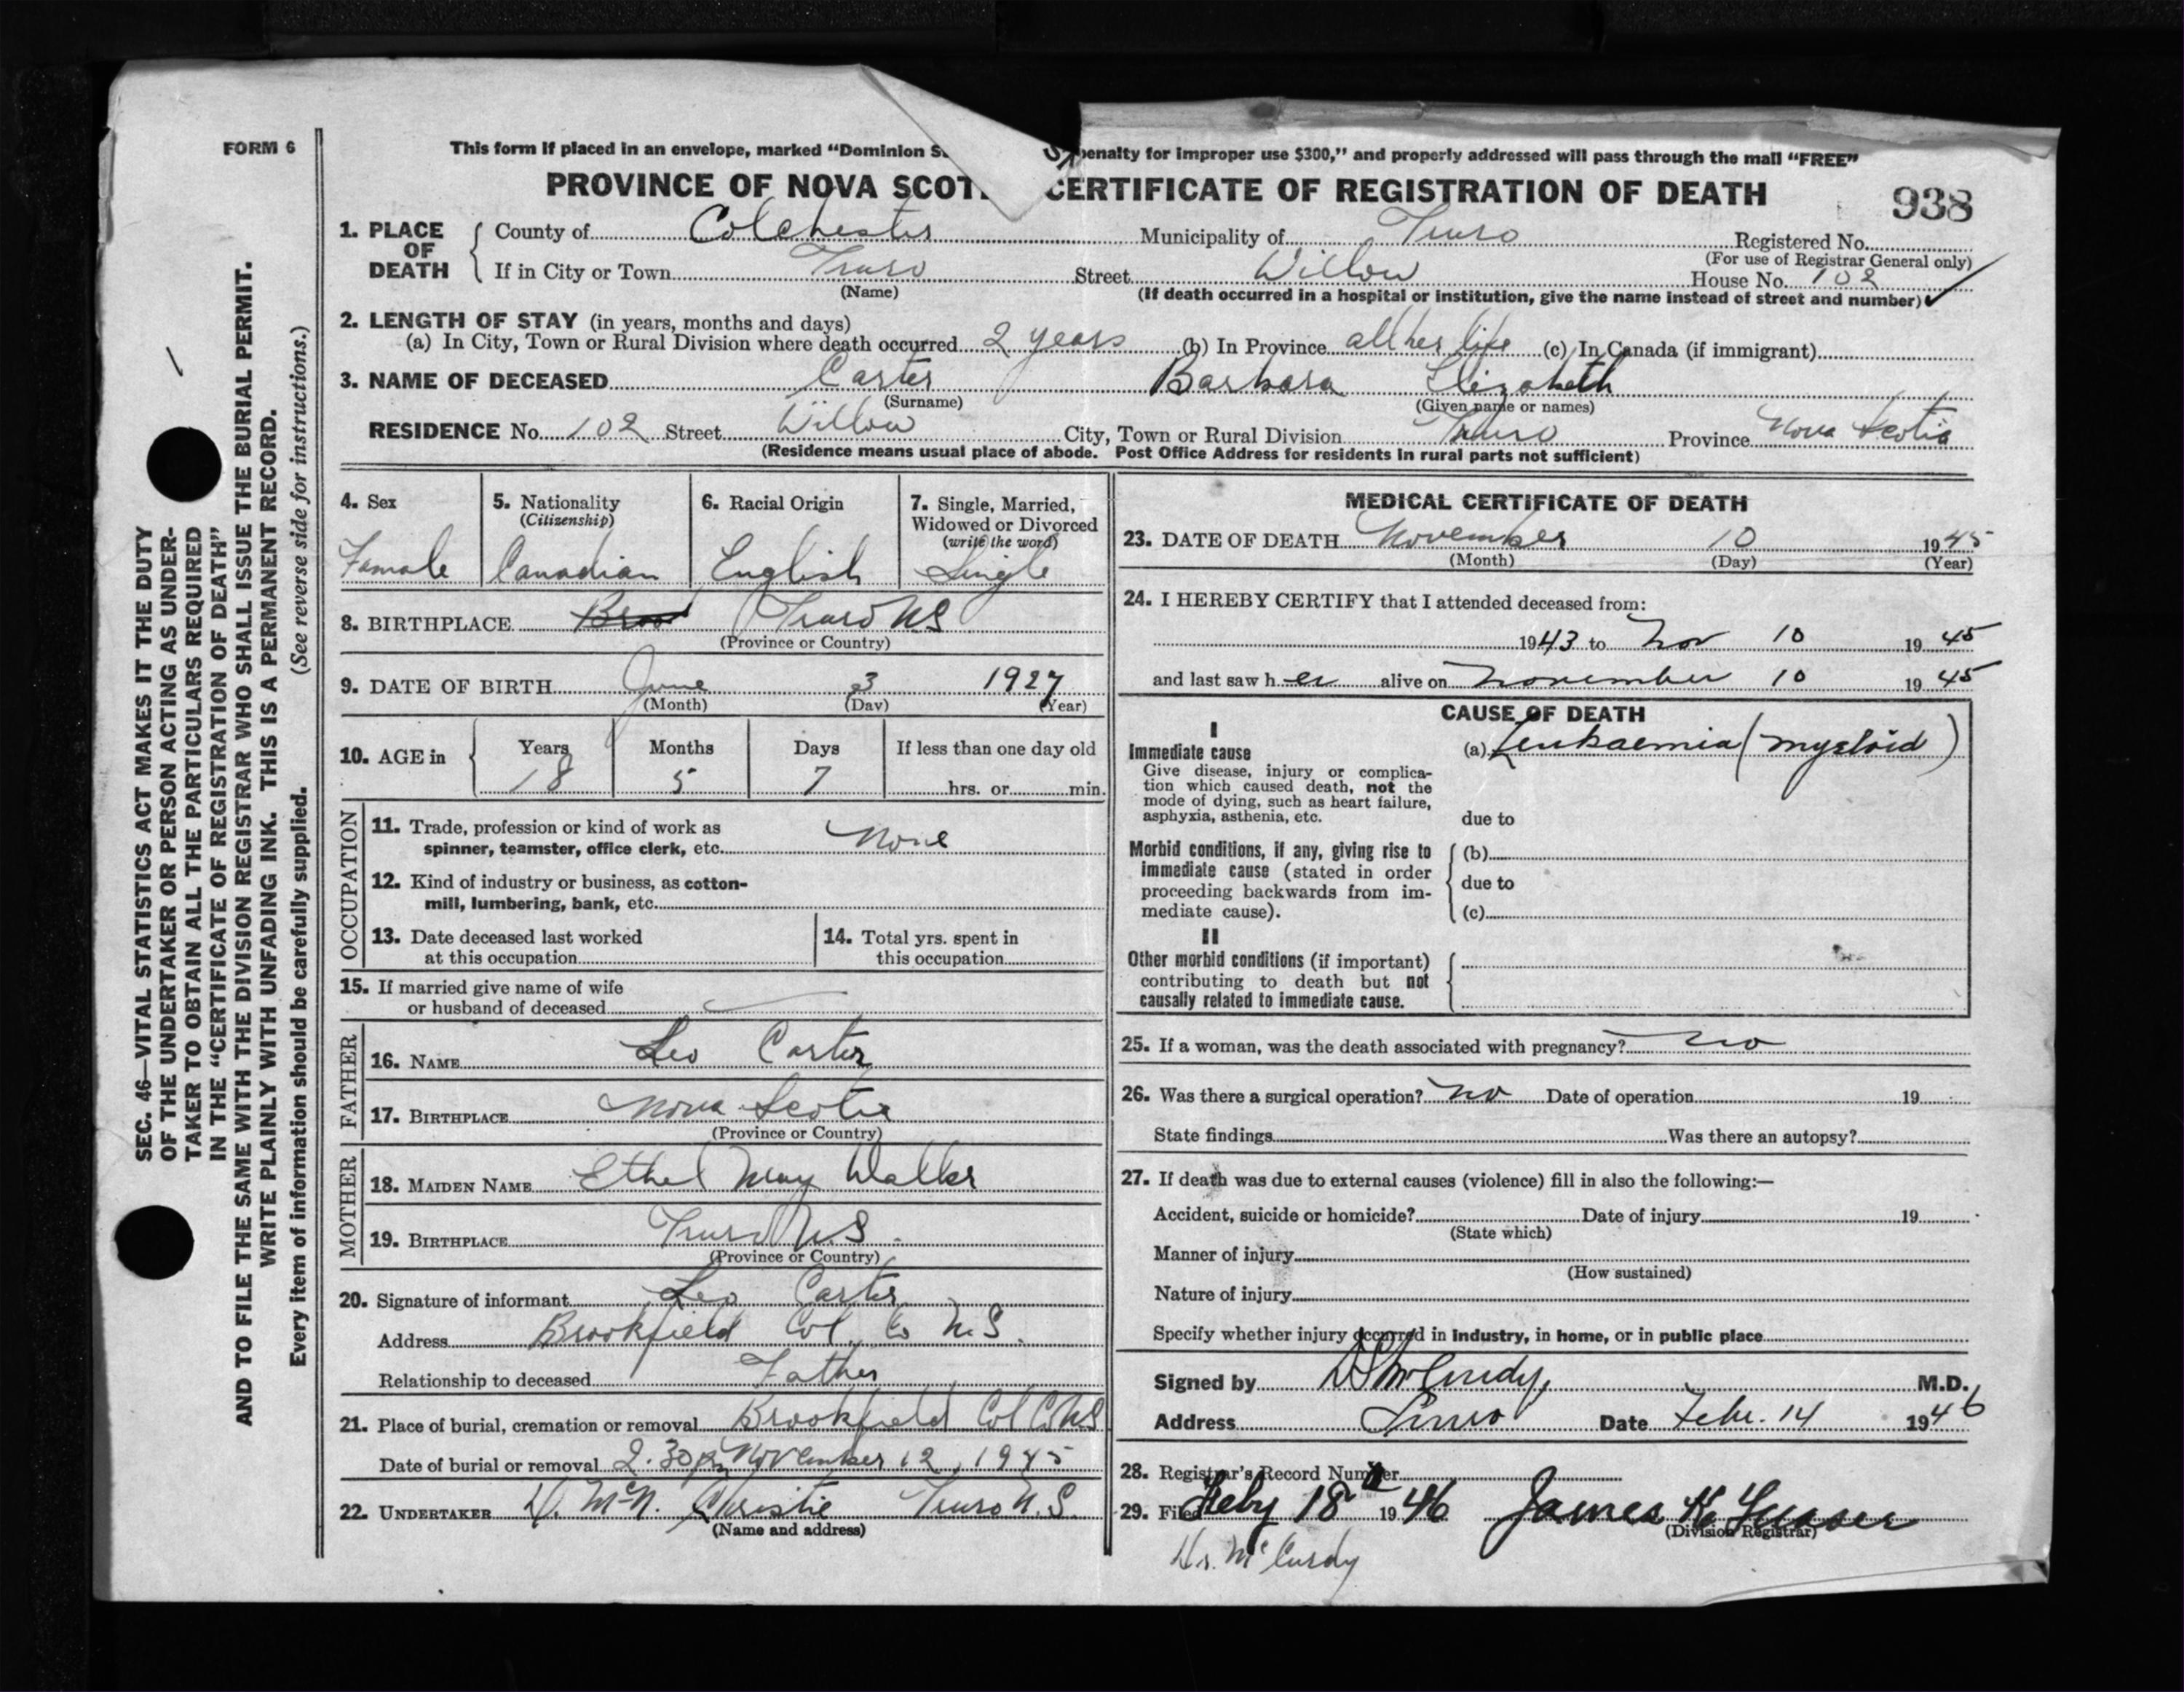 FORM 6
This form if placed in an envelope, marked "Dominion S penalty for improper use $300," and properly addressed will pass through the mail "FREE"
PROVINCE OF NOVA SCOT CERTIFICATE OF REGISTRATION OF DEATH
938
1. PLACE OF DEATH County of Colchester Municipality of Truro Registered No.
(For use of Registrar General only)
If in City or Town Truro Street Willow House No. 102
(Name) (If death occurred in a hospital or institution, give the name instead of street and number)
2. LENGTH OF STAY (in years, months and days)
(a) In City, Town or Rural Division where death occurred 2 years (b) In Province all her life (c) In Canada (if immigrant)
3. NAME OF DECEASED Carter Barbara Elizabeth
(Surname) (Given name or names)
RESIDENCE No. 102 Street Willow City, Town or Rural Division Truro Province Nova Scotia
(Residence means usual place of abode. Post Office Address for residents in rural parts not sufficient)
4. Sex
Female
5. Nationality
(Citizenship)
Canadian
6. Racial Origin
English
7. Single, Married,
Widowed or Divorced
(write the word)
Single
8. BIRTHPLACE Broo Truro N S
(Province or Country)
9. DATE OF BIRTH June 3 1927
(Month) (Day) (Year)
10. AGE in Years Months Days If less than one day old
18 5 7 hrs. or min.
OCCUPATION
11. Trade, profession or kind of work as
spinner, teamster, office clerk, etc. None
12. Kind of industry or business, as cotton-
mill, lumbering, bank, etc.
13. Date deceased last worked
at this occupation
14. Total yrs. spent in
this occupation
15. If married give name of wife
or husband of deceased
FATHER
16. NAME Leo Carter
17. BIRTHPLACE Nova Scotia
(Province or Country)
MOTHER
18. MAIDEN NAME Ethel May Walker
19. BIRTHPLACE Truro N S.
(Province or Country)
20. Signature of informant Leo Carter
Address Brookfield Col. Co N.S.
Relationship to deceased Father
21. Place of burial, cremation or removal Brookfield Col Co NS
Date of burial or removal 2.30 pm November 12, 1945
22. UNDERTAKER D. McN. Christie Truro N.S.
(Name and address)
MEDICAL CERTIFICATE OF DEATH
23. DATE OF DEATH November 10 1945
(Month) (Day) (Year)
24. I HEREBY CERTIFY that I attended deceased from:
1943 to Nov 10 1945
and last saw h er alive on November 10 1945
CAUSE OF DEATH
I
Immediate cause (a) Leukaemia (myeloid)
Give disease, injury or complica-
tion which caused death, not the
mode of dying, such as heart failure,
asphyxia, asthenia, etc. due to
Morbid conditions, if any, giving rise to (b)
immediate cause (stated in order
proceeding backwards from im- due to
mediate cause). (c)
II
Other morbid conditions (if important)
contributing to death but not
causally related to immediate cause.
25. If a woman, was the death associated with pregnancy? No
26. Was there a surgical operation? No Date of operation 19
State findings Was there an autopsy?
27. If death was due to external causes (violence) fill in also the following:—
Accident, suicide or homicide? Date of injury 19
(State which)
Manner of injury
(How sustained)
Nature of injury
Specify whether injury occurred in industry, in home, or in public place
Signed by D S McCurdy, M.D.
Address Truro Date Febr. 14 1946
28. Registrar's Record Number
29. Filed Feby 18th 1946 James K Fraser
(Division Registrar)
Dr. McCurdy
SEC. 46—VITAL STATISTICS ACT MAKES IT THE DUTY
OF THE UNDERTAKER OR PERSON ACTING AS UNDER-
TAKER TO OBTAIN ALL THE PARTICULARS REQUIRED
IN THE "CERTIFICATE OF REGISTRATION OF DEATH"
AND TO FILE THE SAME WITH THE DIVISION REGISTRAR WHO SHALL ISSUE THE BURIAL PERMIT.
WRITE PLAINLY WITH UNFADING INK. THIS IS A PERMANENT RECORD.
Every item of information should be carefully supplied. (See reverse side for instructions.)